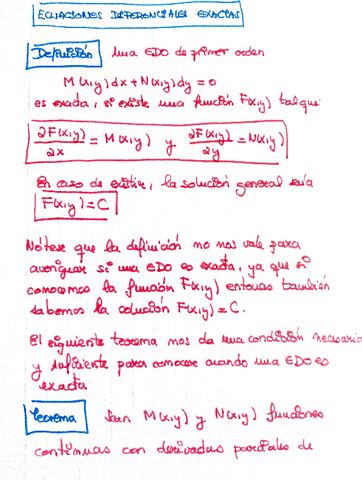 ECUACIONES DIFERENCIALES EXACTAS
Definición Una EDO de primer orden
M(x,y)dx+N(x,y)dy=0
es exacta, si existe una función F(x,y) tal que
∂F(x,y)/∂x = M(x,y) y ∂F(x,y)/∂y = N(x,y)
En caso de existir, la solución general sería
F(x,y)=C
Nótese que la definición no nos vale para
averiguar si una EDO es exacta, ya que si
conocemos la función F(x,y) entonces también
sabemos la solución F(x,y)=C.
El siguiente teorema nos da una condición necesaria
y suficiente para conocer cuando una EDO es
exacta
Teorema Sean M(x,y) y N(x,y) funciones
continuas con derivadas parciales de